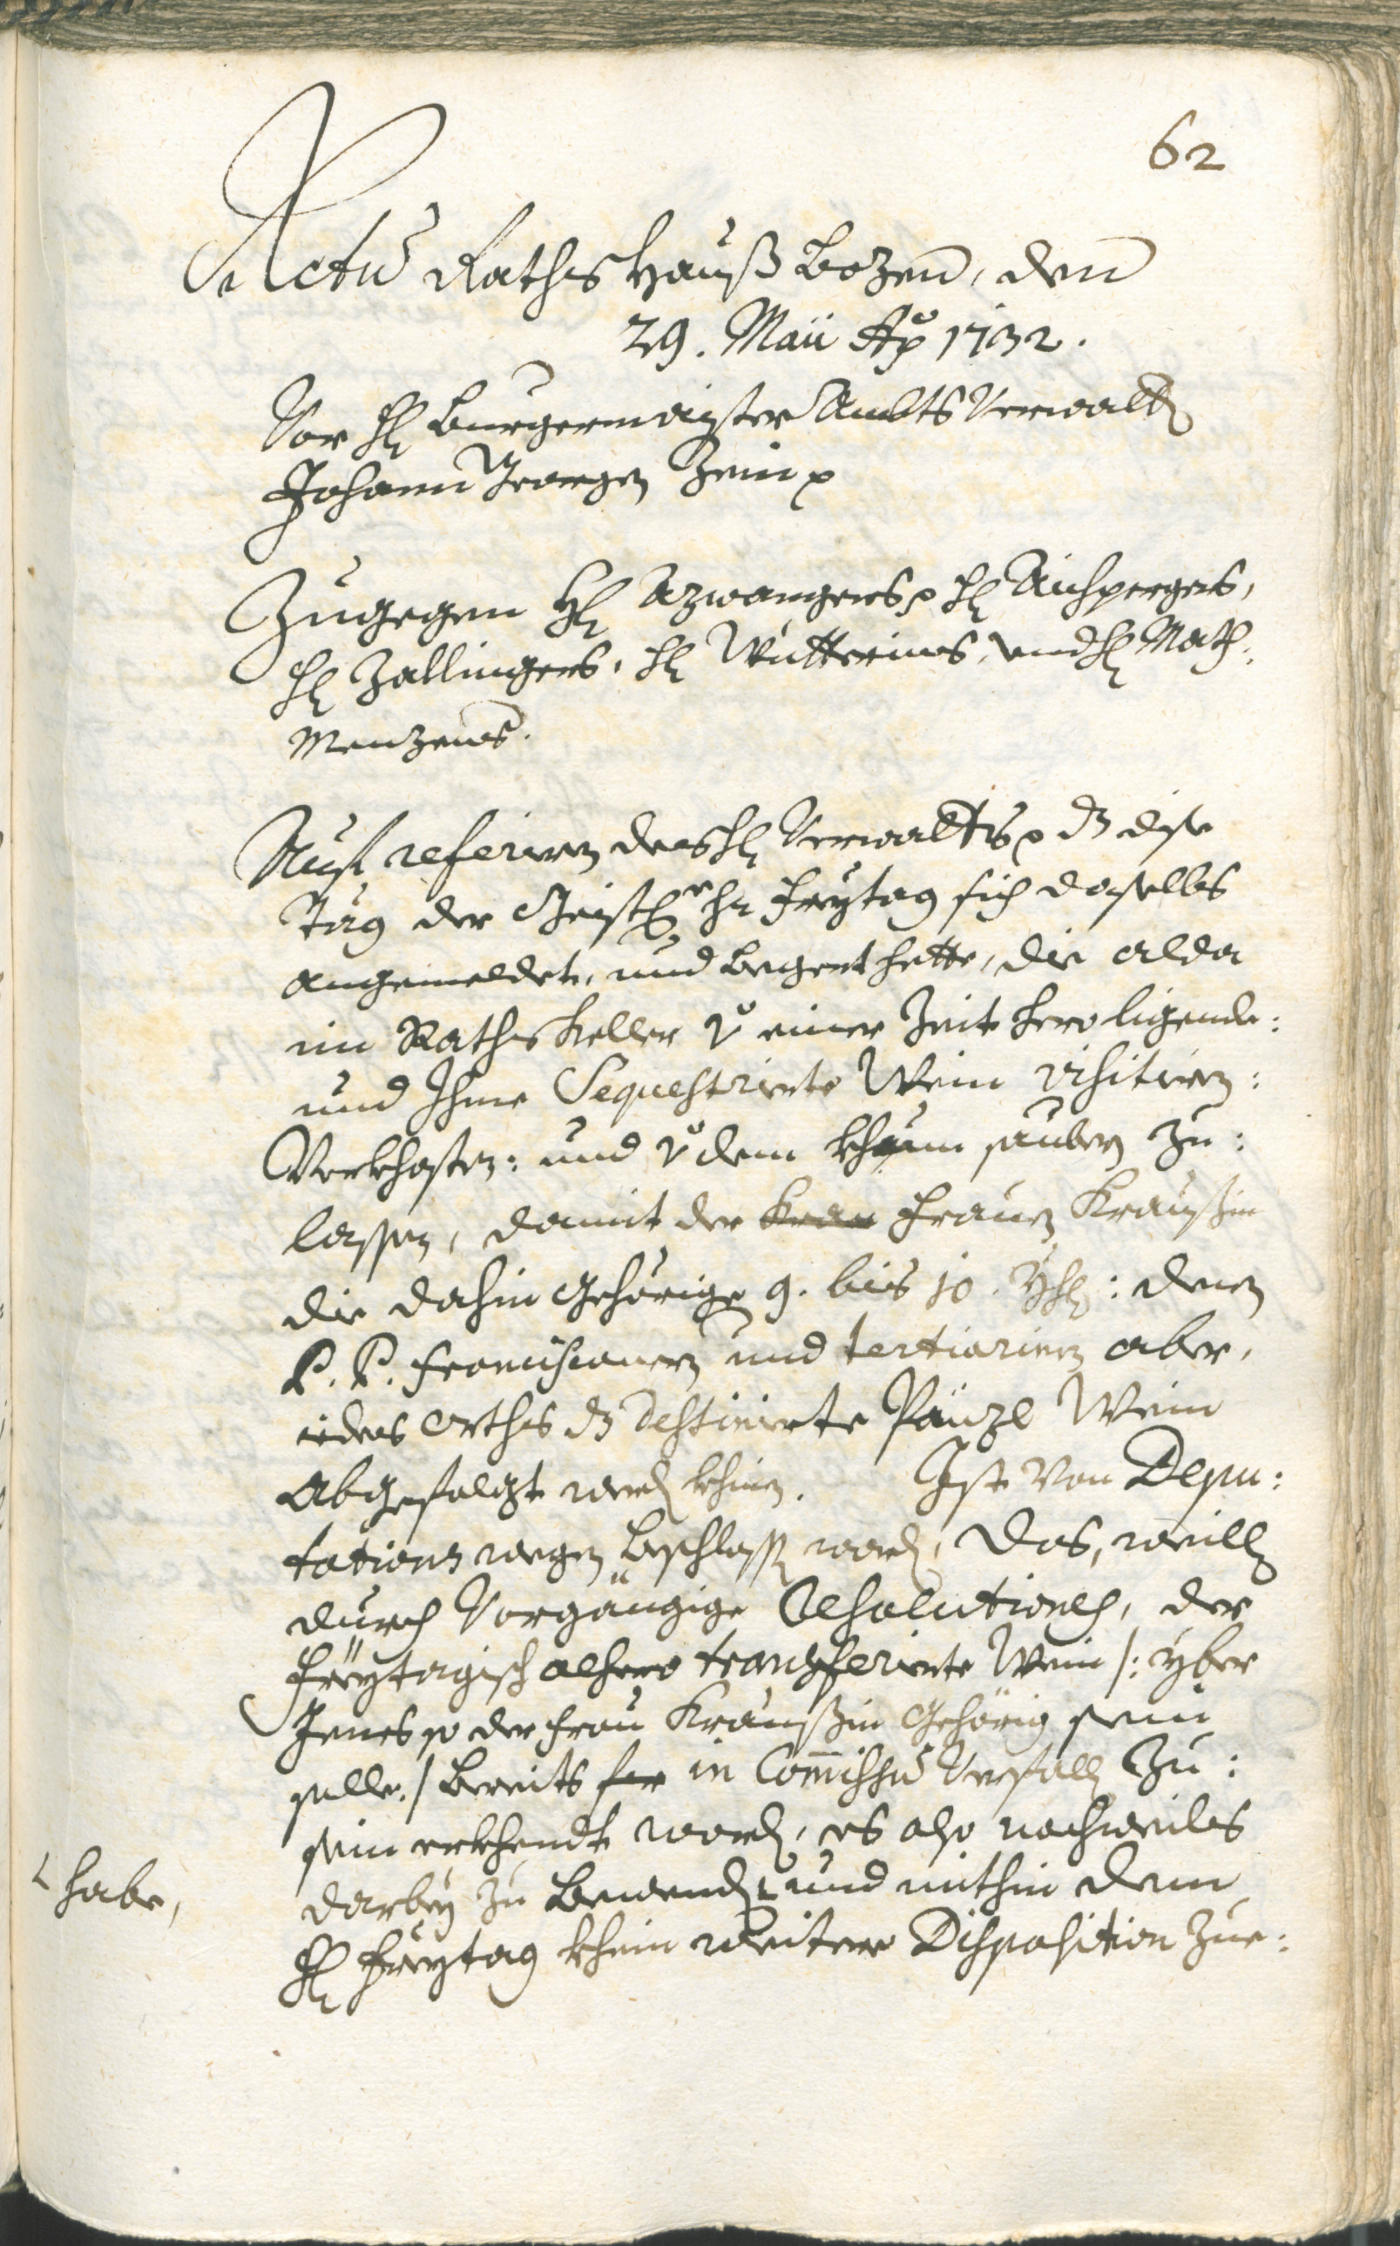 62
Actũ Raths Hauß Bozen, den
29. Maÿ Aõ 1732.
Vor H: Burgermaister Ambts Verwalt:
Johann Georgen Zeni p
Zugegen H: Azwangers p H: Aichpergers,
H: Zallingers, H: Wutterins, und H: Math:
Menzens.
Auf referiren des H: Verwalters p dz dise
Täg der Geistl: H: Freytag sich daselbs
angemeldet, und begert hette, die alda
im Raths Keller v: einer Zeit hero ligende:
und Ihme Sequestrierte Wein visitirn:
Verkhosten: und v: dem khaum saubern zu:
lassen, damit der Frauen Kraußin
die dahin gehörige 9. bis 10. Yhr: denen
P. P. Franciscanern und tertiarinen aber,
iedes Orths dz destinierte Pänzl Wein
abgefolgt werd: khinen. Ist von Depu:
tations wegen beschlossen word:, das, weillen
durch vorgängige Resolutiones, der
Freÿtagisch alhero transferierte Wein /: yber
Jenes so der Frau Kraußin gehörig sein
solle :/ bereits in Commissũ Verfallen zu:
sein erkhendt word:, es also nachmals
darbeÿ zu bewenden und mithin dem
habe,
H: Freytag khein weitere Disposition zue: